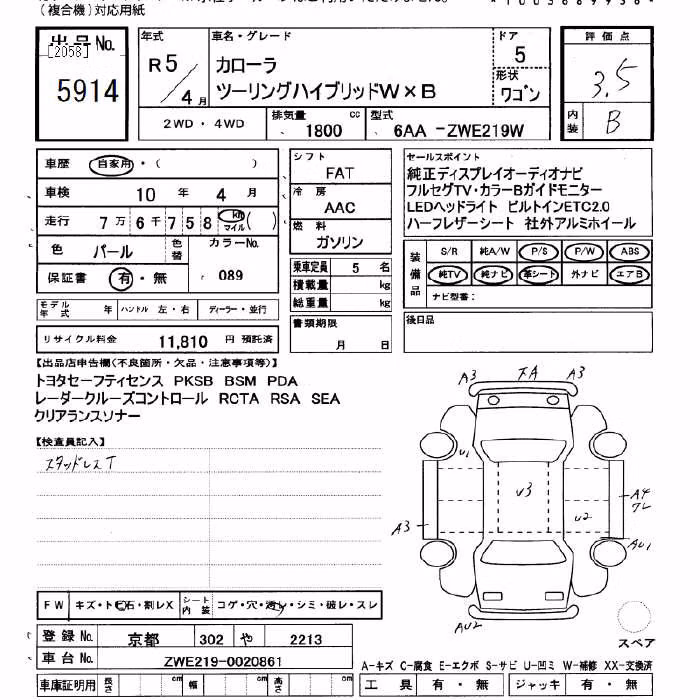 (複合機)対応用紙
出品No.
[2058]
5914
年式
R5
4月
車名・グレード
カローラ
ツーリングハイブリッドW×B
ドア
5
形状
ワゴン
評価点
3.5
内装
B
2WD・4WD
排気量
1800 cc
型式
6AA -ZWE219W
車歴 自家用・( )
車検 10年 4月
走行 7万6千758 km マイル ( )
色 パール
色替
カラーNo.
089
保証書 有・無
モデル年式 年 ハンドル 左・右 ディーラー・並行
リサイクル料金 11,810 円 預託済
シフト
FAT
冷房
AAC
燃料
ガソリン
乗車定員 5 名
積載量 kg
総重量 kg
書類期限
月 日
セールスポイント
純正ディスプレイオーディオナビ
フルセグTV・カラーBガイドモニター
LEDヘッドライト ビルトインETC2.0
ハーフレザーシート 社外アルミホイール
装備品
S/R 純A/W P/S P/W ABS
純TV 純ナビ 革シート 外ナビ エアB
ナビ型番:
後日品
【出品店申告欄(不良箇所・欠品・注意事項等)】
トヨタセーフティセンス PKSB BSM PDA
レーダークルーズコントロール RCTA RSA SEA
クリアランスソナー
【検査員記入】
スタッドレスT
A3 FA A3
U1
U3
A4
U2
A3
AU1
AU2
スペア
FW キズ・トビ石・割レX
シート内装 コゲ・穴・透レ・シミ・破レ・スレ
登録No. 京都 302 や 2213
車台No. ZWE219-0020861
車庫証明用 長さ cm 幅 cm 高さ cm
A-キズ C-腐食 E-エクボ S-サビ U-凹ミ W-補修 XX-交換済
工具 有・無 ジャッキ 有・無